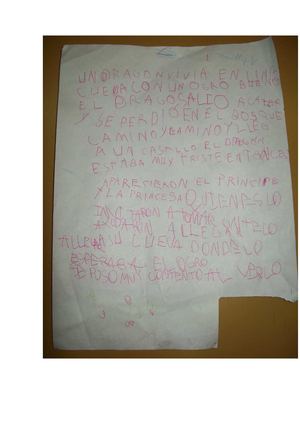 UN DRAGON VIVIA EN UNA
CUEVA CON UN OGRO BUENO
EL DRAGO SALIO A CAZAR
Y SE PERDIO EN EL BOSQUE
CAMINO Y CAMINO Y LLEGO
A UN CASTILLO EL DRAGON
ESTABA MUY TRISTE ENTONCES
APARECIERON EL PRINCIPE
Y LA PRINCESA QUIENES LO
INVITARON A TOMAR
A LLEGAR
A SU CUEVA DONDE LO
ESPERABA EL OGRO
SE PUSO MUY CONTENTO AL VERLO